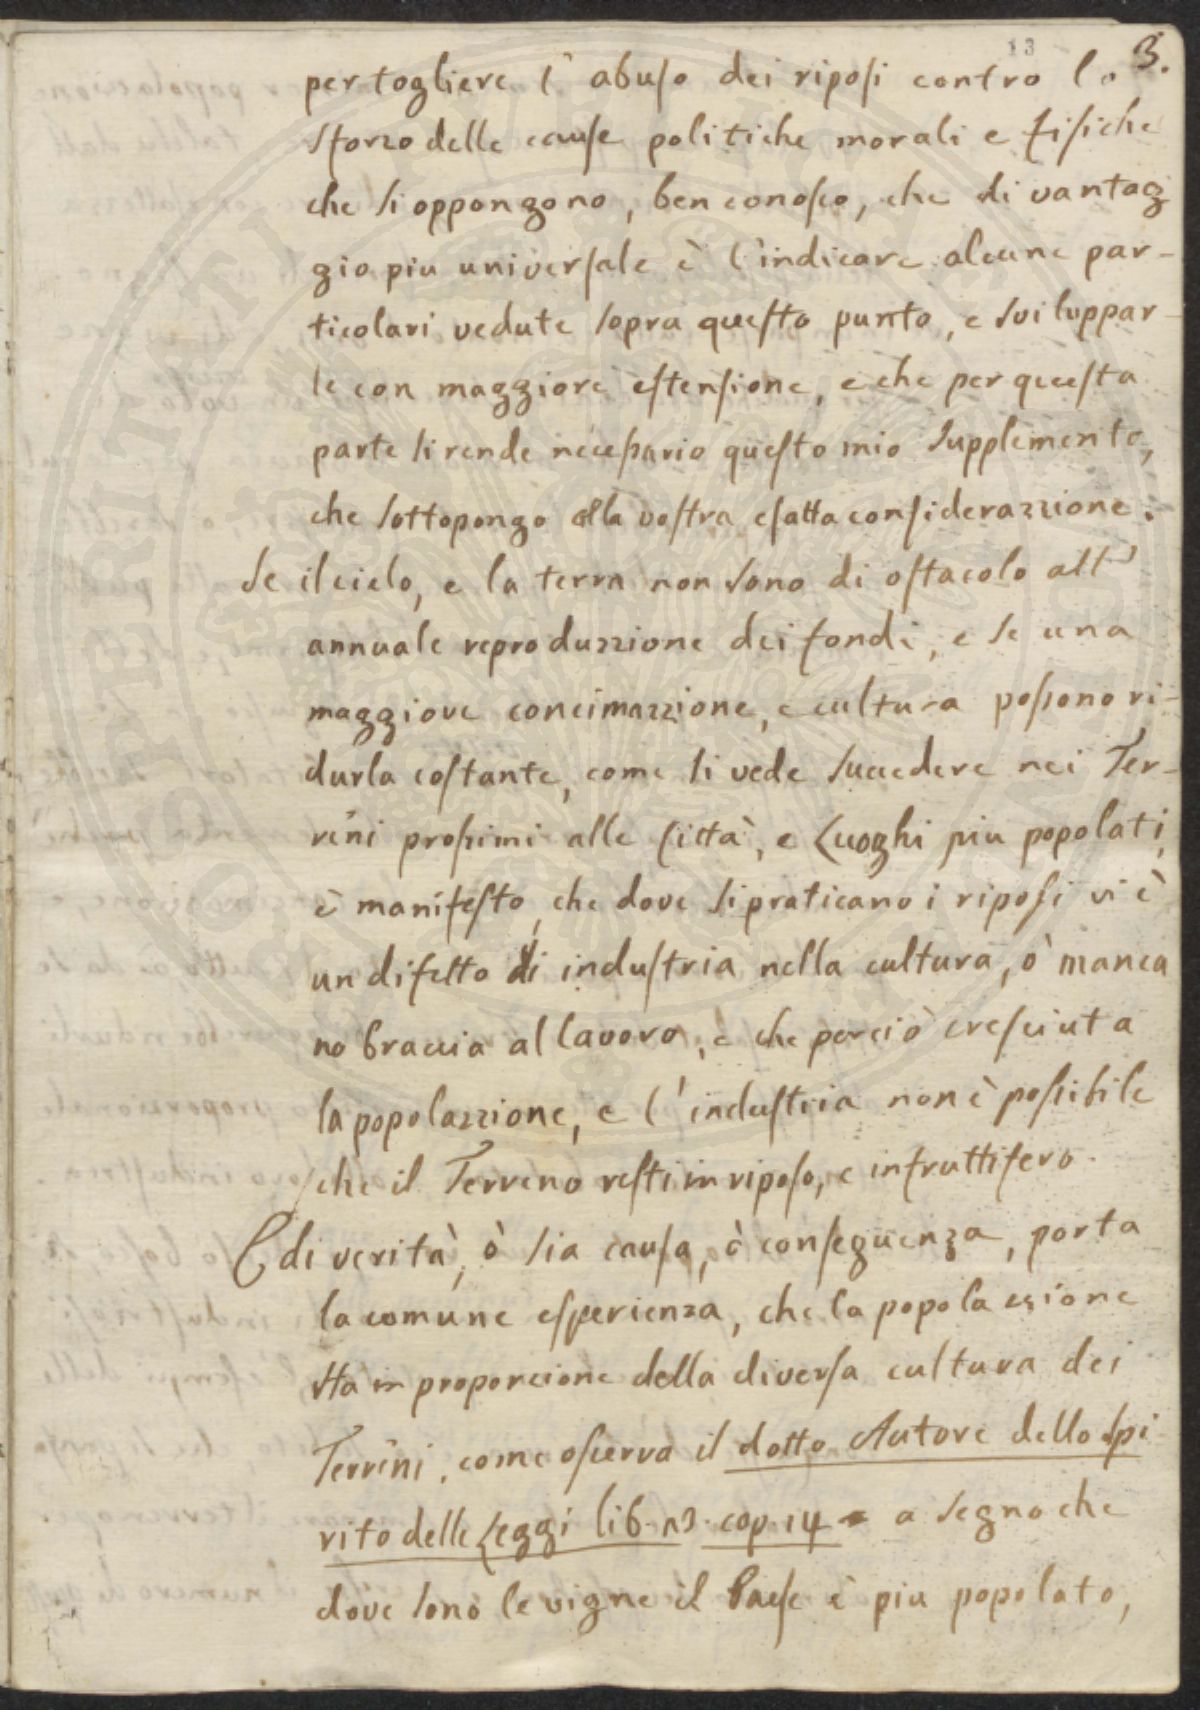 13 3.
per togliere l'abuso dei riposi contro lo
sforzo delle cause politiche morali e fisiche
che si oppongono, ben conosco, che di vantag
gio piu universale è l'indicare alcune par-
ticolari vedute sopra questo punto, e sviluppar-
le con maggiore estensione, e che per questa
parte si rende necessario questo mio Supplemento,
che sottopongo alla vostra esatta considerazzione.
Se il cielo, e la terra non sono di ostacolo all'
annuale reproduzzione dei fondi, e se una
maggiore concimazzione, e cultura possono ri-
durla costante, come si vede succedere nei Ter-
reni prossimi alle Città, e Luoghi piu popolati,
è manifesto, che dove si praticano i riposi vi è
un difetto di industria nella cultura, ò manca
no braccia al lavoro, e che perciò cresciuta
la popolazzione, e l'industria non è possibile
che il Terreno resti in riposo, e infruttifero.
E di verità, ò sia causa, ò conseguenza, porta
la comune esperienza, che la popolazione
stà in proporcione della diversa cultura dei
Terreni, come osserva il dotto Autore dello Spi
rito delle Leggi lib. 23. cap. 14 a segno che
dove sono le vigne il Paese è piu popolato,